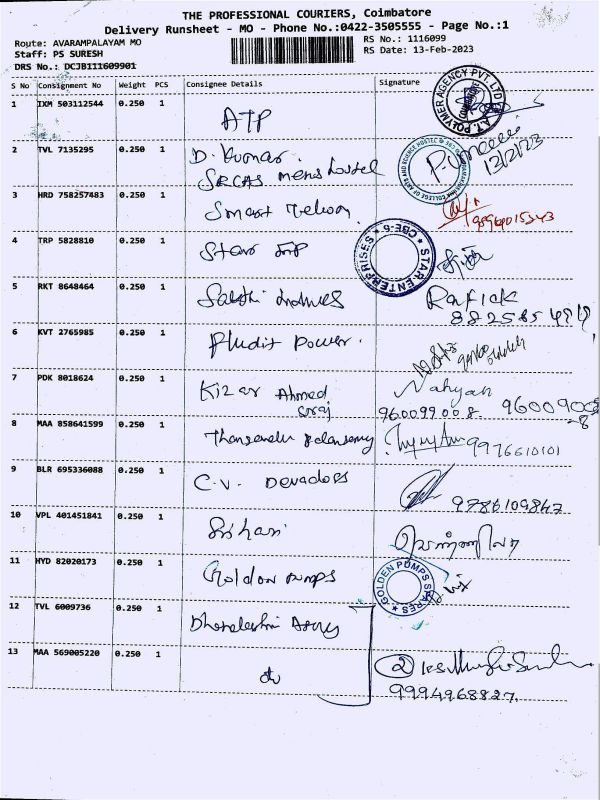 THE PROFESSIONAL COURIERS, Coimbatore
Delivery Runsheet - MO - Phone No.:0422-3505555 - Page No.:1
Route: AVARAMPALAYAM MO
RS No.: 1116099
Staff: PS SURESH
RS Date: 13-Feb-2023
DRS No.: DCJB111609901
S No Consignment No Weight PCS Consignee Details Signature
1 IXM 503112544 0.250 1 ATP
A.T. POLYMER AGENCY PVT. LTD
2 TVL 7135295 0.250 1 D. Kumar.
SRCAS mens hostel
13/2/23
3 HRD 758257483 0.250 1 Smart
4 TRP 5828810 0.250 1 Star
STAR ENTERPRISES ★ CBE-6 ★
5 RKT 8648464 0.250 1 Sakthi Rafick
88258
6 KVT 2765985 0.250 1 Power.
7 PDK 8018624 0.250 1 Kizar Ahmed Nahyan
960099008. 9600900
-8
8 MAA 858641599 0.250 1 9976610101
9 BLR 695336088 0.250 1 C.V. Devadoss 9786109847
10 VPL 401451841 0.250 1 Srihari
11 HYD 82020173 0.250 1 Golden Pumps
GOLDEN PUMPS SPARES
12 TVL 6009736 0.250 1
13 MAA 569005220 0.250 1 do
②
9994968827.